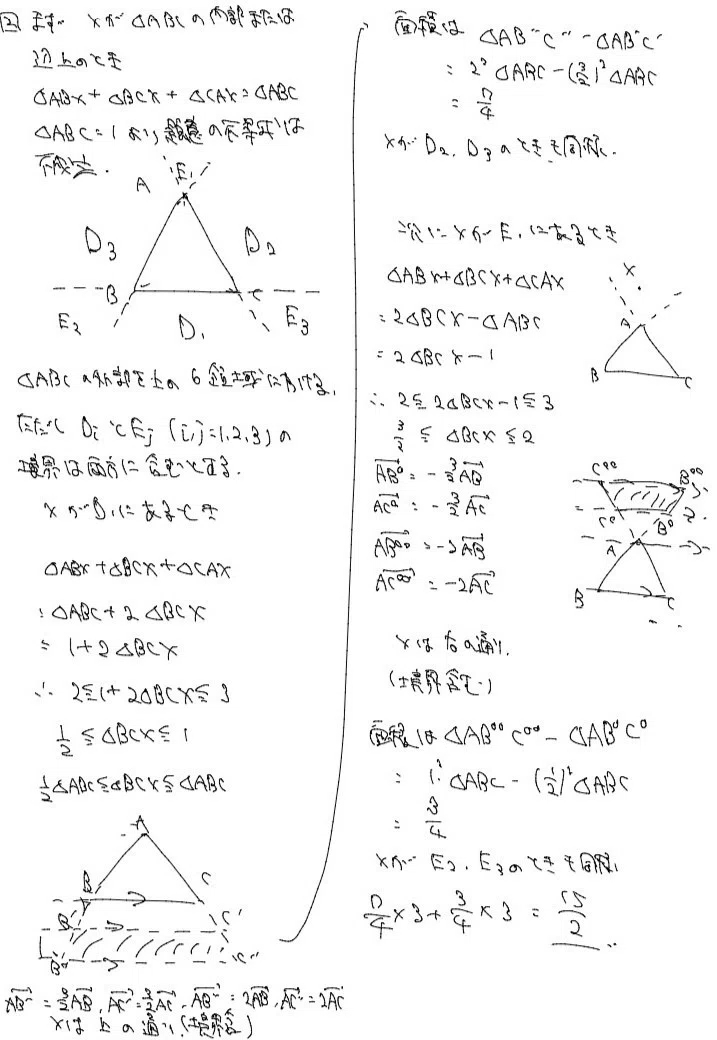 ② まず、Xが△ABCの内部または
辺上のとき
△ABX+△BCX+△CAX=△ABC
△ABC=1より、題意の不等式は
不成立.
A E₁
D₃ D₂
B C
E₂ D₁ E₃
△ABCの外部で上の6領域に分ける.
ただし DᵢとEⱼ (i,j=1,2,3)の
境界は両方に含むとする.
XがD₁にあるとき
△ABX+△BCX+△CAX
=△ABC+2△BCX
=1+2△BCX
∴ 2≦1+2△BCX≦3
1/2≦△BCX≦1
1/2△ABC≦△BCX≦△ABC
A
B C
B' C'
B'' C''
AB'=3/2AB, AC'=3/2AC, AB''=2AB, AC''=2AC
Xは上の通り(境界含)
面積は △AB''C''-△AB'C'
=2²△ABC-(3/2)²△ABC
=7/4
XがD₂,D₃のときも同様.
次にXがE₁にあるとき
△ABX+△BCX+△CAX
=2△BCX-△ABC
=2△BCX-1
X
A
B C
∴ 2≦2△BCX-1≦3
3/2≦△BCX≦2
AB°=-3/2AB
AC°=-3/2AC
AB°°=-2AB
AC°°=-2AC
C°° B°°
C° B°
A
B C
Xは右の通り.
(境界含む)
面積は△AB°°C°°-△AB°C°
=1²・△ABC-(1/2)²△ABC
=3/4
XがE₂,E₃のときも同様.
7/4×3+3/4×3=15/2